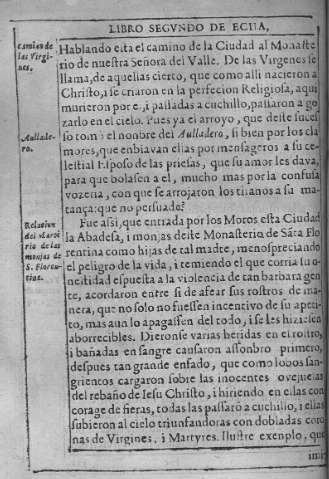 LIBRO SEGVNDO DE ECIJA,
Camino de
las Virgi-
nes.
Hablando està el camino de la Ciudad al Monaste
rio de nuestra Señora del Valle. De las Virgenes se
llama, de aquellas cierto, que como alli nacieron a
Christo, i se criaron en la perfecion Religiosa, aqui
murieron por el, i passadas a cuchillo, passaron a go
zarlo en el cielo. Pues ya el arroyo, que deste suces
Aullade-
ro.
so tomò el nonbre del Aulladero, si bien por los cla
mores, que enbiavan ellas por mensageros a su ce-
lestial Esposo de las priesas, que su amor les dava,
para que bolasen a el, mucho mas por la confusa
vozeria, con que se arrojaron los tiranos a su ma-
tança: que no persuade?
Relacion
del Marti
rio de las
monjas de
S. Floren-
tina.
Fue assi, que entrada por los Moros esta Ciudad
la Abadesa, i monjas deste Monasterio de Sãta Flo
rentina como hijas de tal madre, menospreciando
el peligro de la vida, i temiendo el que corria su o-
nestidad espuesta a la violencia de tan barbara gen
te, acordaron entre si de afear sus rostros de ma-
nera, que no solo no fuessen incentivo de su apeti-
to, mas aun lo apagassen del todo, i se les hiziesen
aborrecibles. Dieronse varias heridas en el rostro,
i bañadas en sangre causaron assonbro primero,
despues tan grande enfado, que como lobos san-
grientos cargaron sobre las inocentes ovejuelas
del rebaño de Iesu Christo, i hiriendo en ellas con
corage de fieras, todas las passarõ a cuchillo, i ellas
subieron al cielo triunfandoras con dobladas coro
nas de Virgines, i Martyres. Ilustre exenplo, que